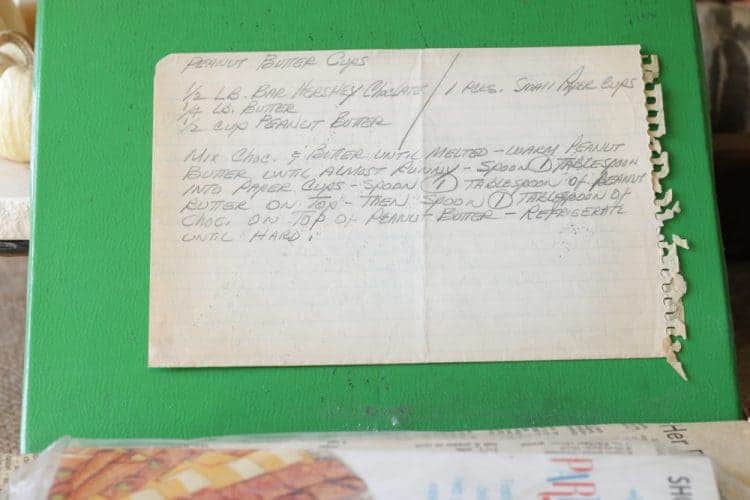 PEANUT BUTTER CUPS
1/2 LB. BAR HERSHEY CHOCLATE / 1 PKG. SMALL PAPER CUPS
1/4 LB. BUTTER
1/2 CUP PEANUT BUTTER
MIX CHOC. & BUTTER UNTIL MELTED - WARM PEANUT
BUTTER UNTIL ALMOST RUNNY - SPOON 1 TABLESPOON
INTO PAPER CUPS - SPOON 1 TABLESPOON OF PEANUT
BUTTER ON TOP - THEN SPOON 1 TABLESPOON OF
CHOC. ON TOP OF PEANUT BUTTER - REFRIGERATE
UNTIL HARD.
Her
SH